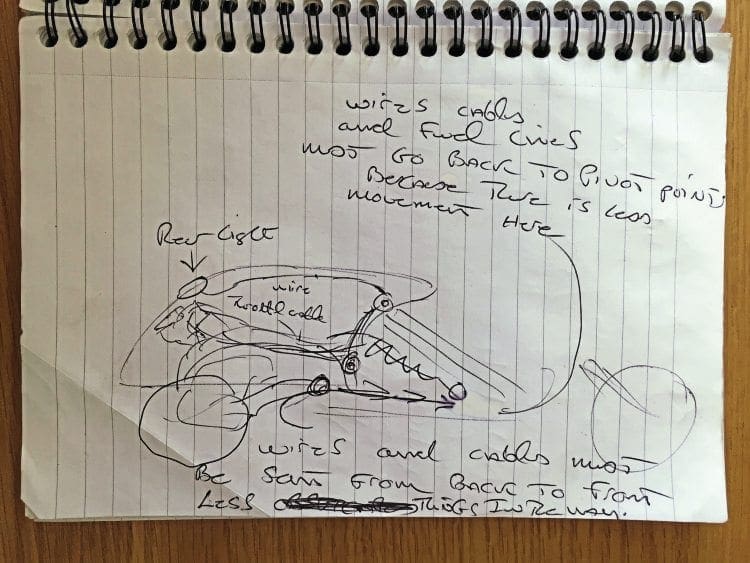 wires cables
and Fuel lines
most Go Back To Pivot points
Because There is less
movement Here
Rear light
wire
Throttl cable
wires and cables most
Be sent From Back To Front
Less THiGS In THe way.